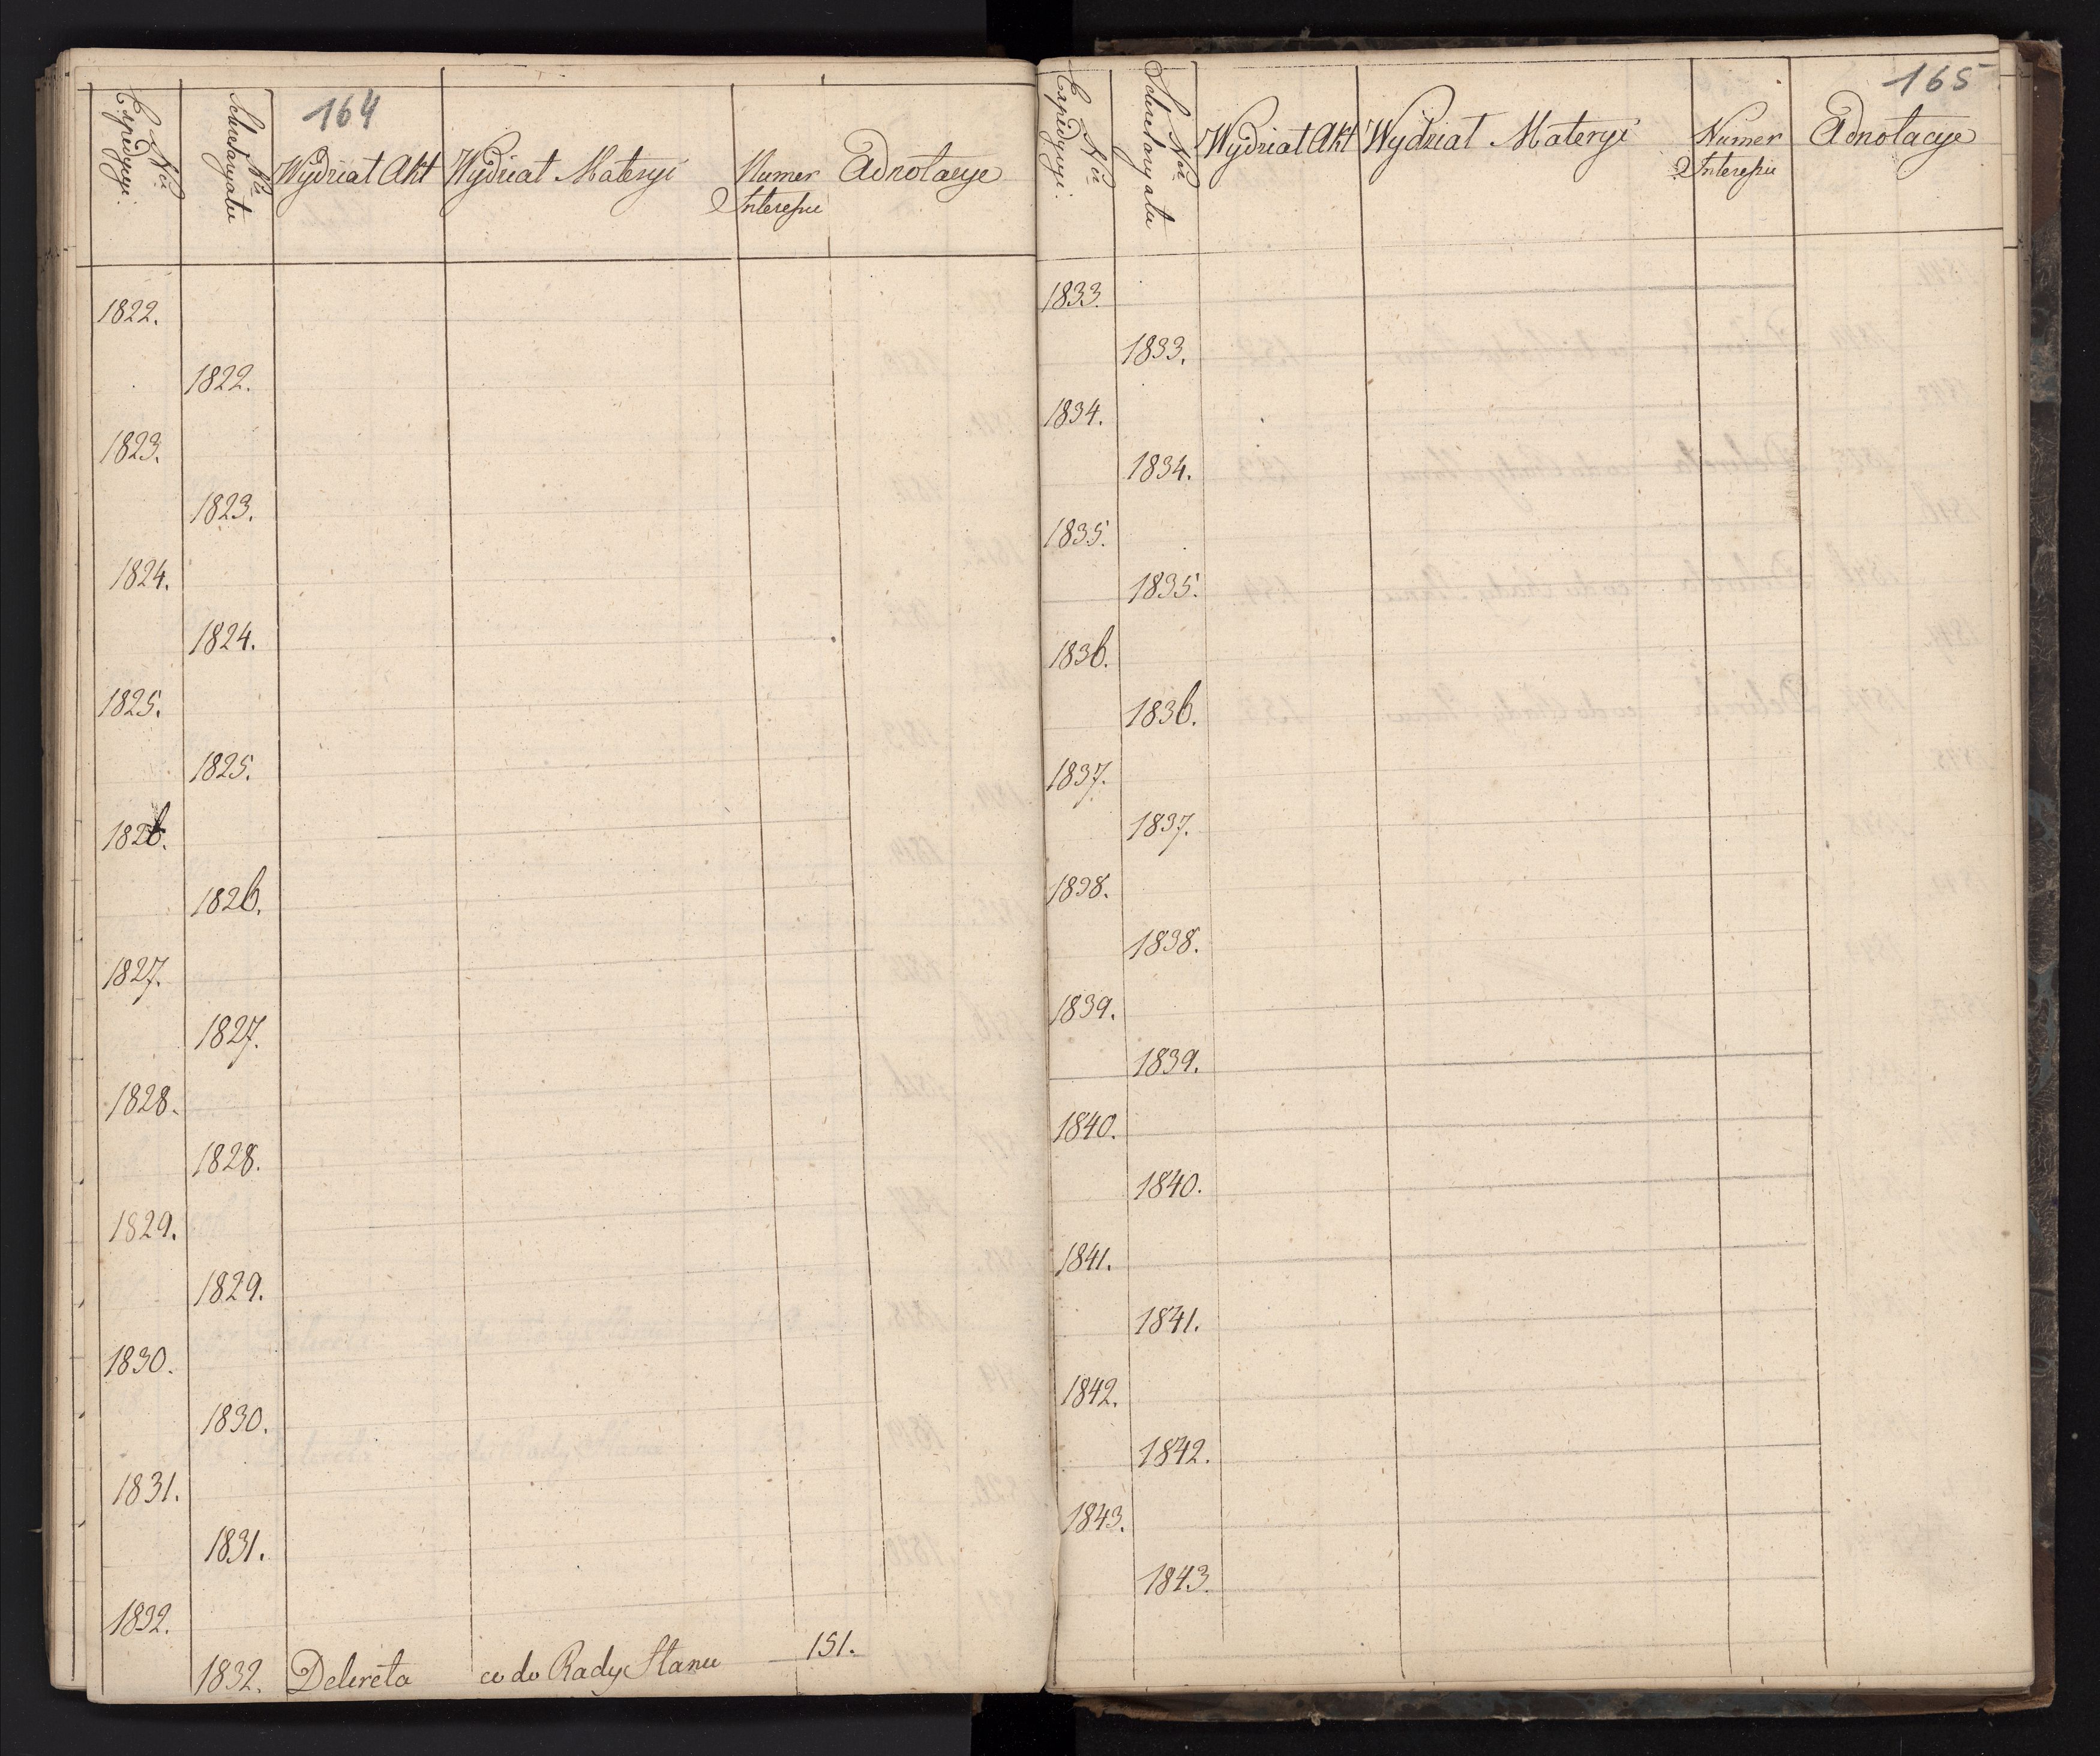 164
Nrú Expedycyi.
Nrú Sekretaryatu
Wydział Akt
Wydział Materyi
Numer Interessu
Adnotacye
1822.
1822.
1823.
1823.
1824.
1824.
1825.
1825.
1826.
1826.
1827.
1827.
1828.
1828.
1829.
1829.
1830.
1830.
1831.
1831.
1832.
1832. Dekreta co do Rady Stanu 151.
165
Nrú Expedycyi.
Nrú Sekretaryatu
Wydział Akt
Wydział Materyi
Numer Interessu
Adnotacye
1833.
1833.
1834.
1834.
1835.
1835.
1836.
1836.
1837.
1837.
1838.
1838.
1839.
1839.
1840.
1840.
1841.
1841.
1842.
1842.
1843.
1843.